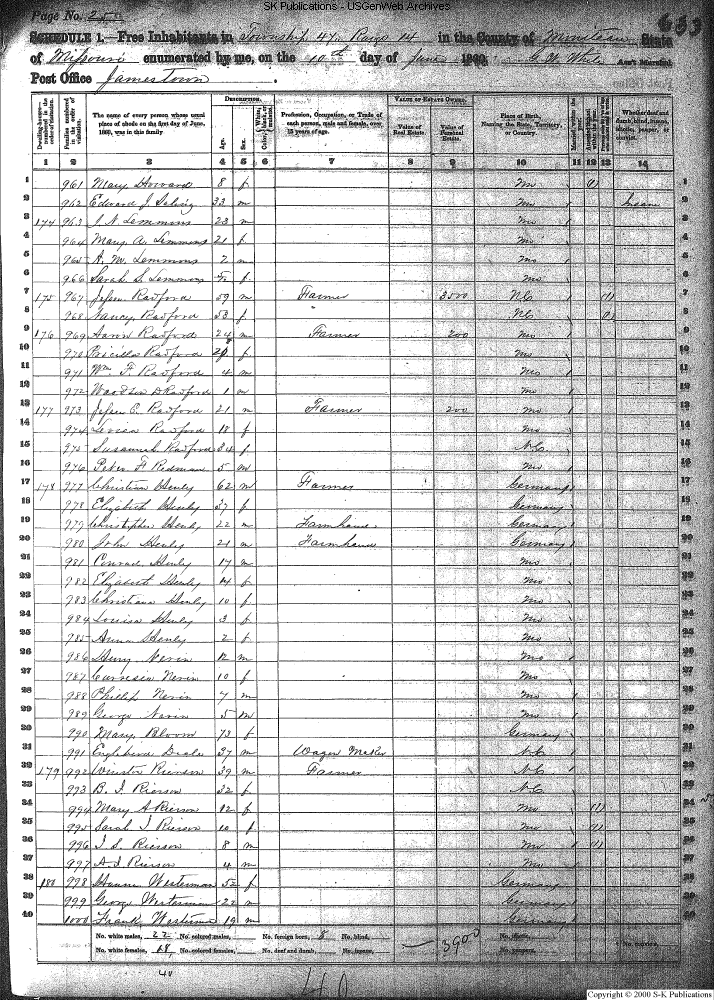 SK Publications - USGenWeb Archives
Page No. 25
653
SCHEDULE 1.—Free Inhabitants in Township 47, Range 14 in the County of Moniteau State
of Missouri enumerated by me, on the 10th day of June 1860. G. W. White Ass't Marshal.
Post Office Jamestown.
Dwelling-houses—numbered in the order of visitation.
Families numbered in the order of visitation.
The name of every person whose usual place of abode on the first day of June, 1860, was in this family
DESCRIPTION.
Age. Sex. Color, White, black, or mulatto.
Profession, Occupation, or Trade of each person, male and female, over 15 years of age.
VALUE OF ESTATE OWNED.
Value of Real Estate. Value of Personal Estate.
Place of Birth, Naming the State, Territory, or Country.
Married within the year.
Whether deaf and dumb, blind, insane, idiotic, pauper, or convict.
1 2 3 4 5 6 7 8 9 10 11 12 13 14
1 961 Mary Howard 8 f Mo (1) 1
2 962 Edward J. 33 m Mo 2
3 174 963 J. N. Lemmons 23 m Mo 3
4 964 Mary A. Lemmons 21 f Mo 4
5 965 A. M. Lemmons 2 m Mo 5
6 966 Sarah S. Lemmons f Mo 6
7 175 967 Jesse Radford 59 m Farmer 3500 NC (1) 7
8 968 Nancy Radford 53 f NC 8
9 176 969 Aaron Radford 24 m Farmer 200 Mo 9
10 970 Priscilla Radford f Mo 10
11 971 Wm. F. Radford 4 m Mo 11
12 972 Woodson D Radford 1 m Mo 12
13 177 973 Jesse C. Radford 21 m Farmer 200 Mo 13
14 974 Levisa Radford 18 f Mo 14
15 975 Susannah Radford 34 f N.C. 15
16 976 Peter F. Redman 5 m Mo 16
17 178 977 Christian Henly 62 m Farmer Germany 17
18 978 Elizabeth Henly 37 f Germany 18
19 979 Christopher Henly 22 m Farmhand Germany 19
20 980 John Henly 21 m Farmhand Germany 20
21 981 Conrad Henly 17 m Mo 21
22 982 Elizabeth Henly 14 f Mo 22
23 983 Christiana Henly 10 f Mo 23
24 984 Louisa Henly 3 f Mo 24
25 985 Anna Henly 2 f Mo 25
26 986 Henry Nevin 12 m Mo 26
27 987 Nevin 10 f Mo 27
28 988 Phillip Nevin 7 m Mo 28
29 989 George Nevin 5 m Mo 29
30 990 Mary Bloom 73 f Germany 30
31 991 37 m Wagon Maker N.C. 31
32 179 992 Winston Rierson 39 m Farmer N.C. 32
33 993 B. J. Rierson 32 f N.C. 33
34 994 Mary A Rierson 12 f Mo (1) 34
35 995 Sarah J Rierson 10 f Mo (1) 35
36 996 J. S. Rierson 8 m Mo (1) 36
37 997 A J Rierson 4 m Mo 37
38 180 998 Westerman 52 f Germany 38
39 999 George Westerman 22 m Germany 39
40 1000 Frank Westerman 19 m Germany 40
No. white males, 22 No. colored males, No. foreign born, 8 No. blind, — 3900 No. idiotic,
No. white females, 18, No. colored females, No. deaf and dumb, No. insane, No. paupers, No. convicts,
40
Copyright © 2000 S-K Publications